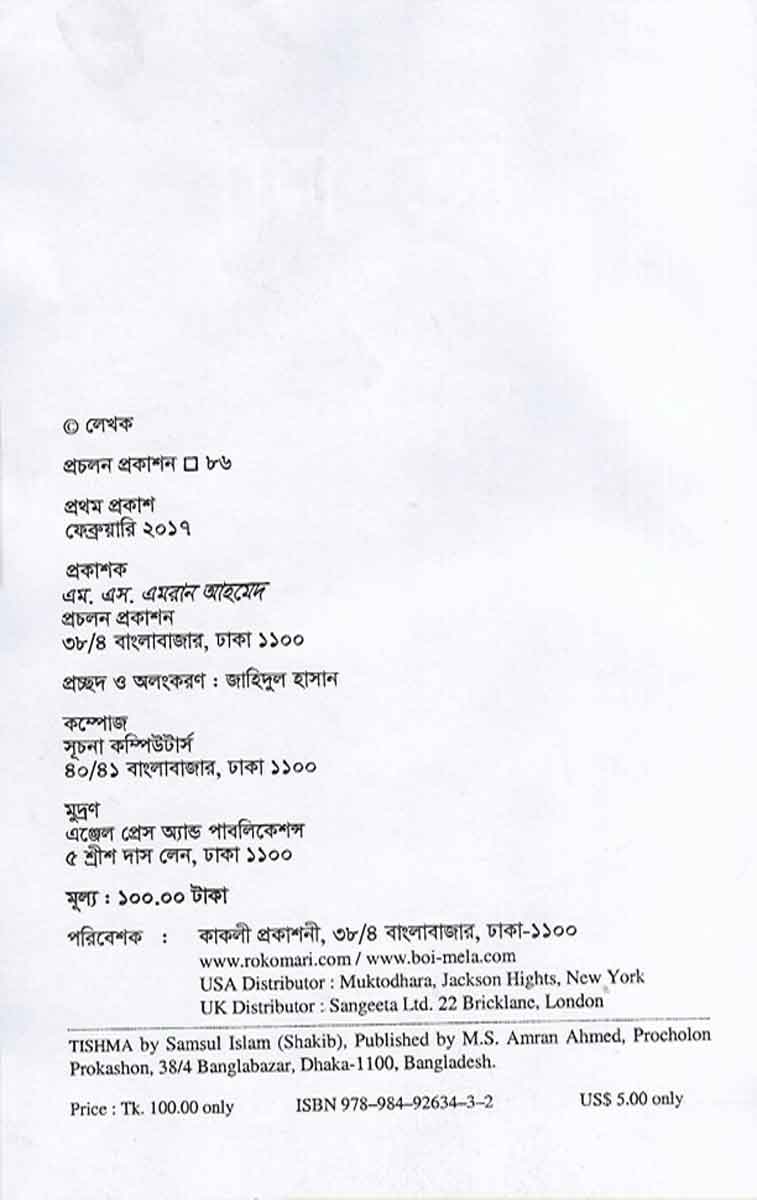 © লেখক
প্রচলন প্রকাশন □ ৮৬
প্রথম প্রকাশ
ফেব্রুয়ারি ২০১৭
প্রকাশক
এম. এস. এমরান আহমেদ
প্রচলন প্রকাশন
৩৮/৪ বাংলাবাজার, ঢাকা ১১০০
প্রচ্ছদ ও অলংকরণ : জাহিদুল হাসান
কম্পোজ
সূচনা কম্পিউটার্স
৪০/৪১ বাংলাবাজার, ঢাকা ১১০০
মুদ্রণ
এঞ্জেল প্রেস অ্যান্ড পাবলিকেশন্স
৫ শ্রীশ দাস লেন, ঢাকা ১১০০
মূল্য : ১০০.০০ টাকা
পরিবেশক : কাকলী প্রকাশনী, ৩৮/৪ বাংলাবাজার, ঢাকা-১১০০
www.rokomari.com / www.boi-mela.com
USA Distributor : Muktodhara, Jackson Hights, New York
UK Distributor : Sangeeta Ltd. 22 Bricklane, London
TISHMA by Samsul Islam (Shakib), Published by M.S. Amran Ahmed, Procholon
Prokashon, 38/4 Banglabazar, Dhaka-1100, Bangladesh.
Price : Tk. 100.00 only ISBN 978–984–92634–3–2 US$ 5.00 only